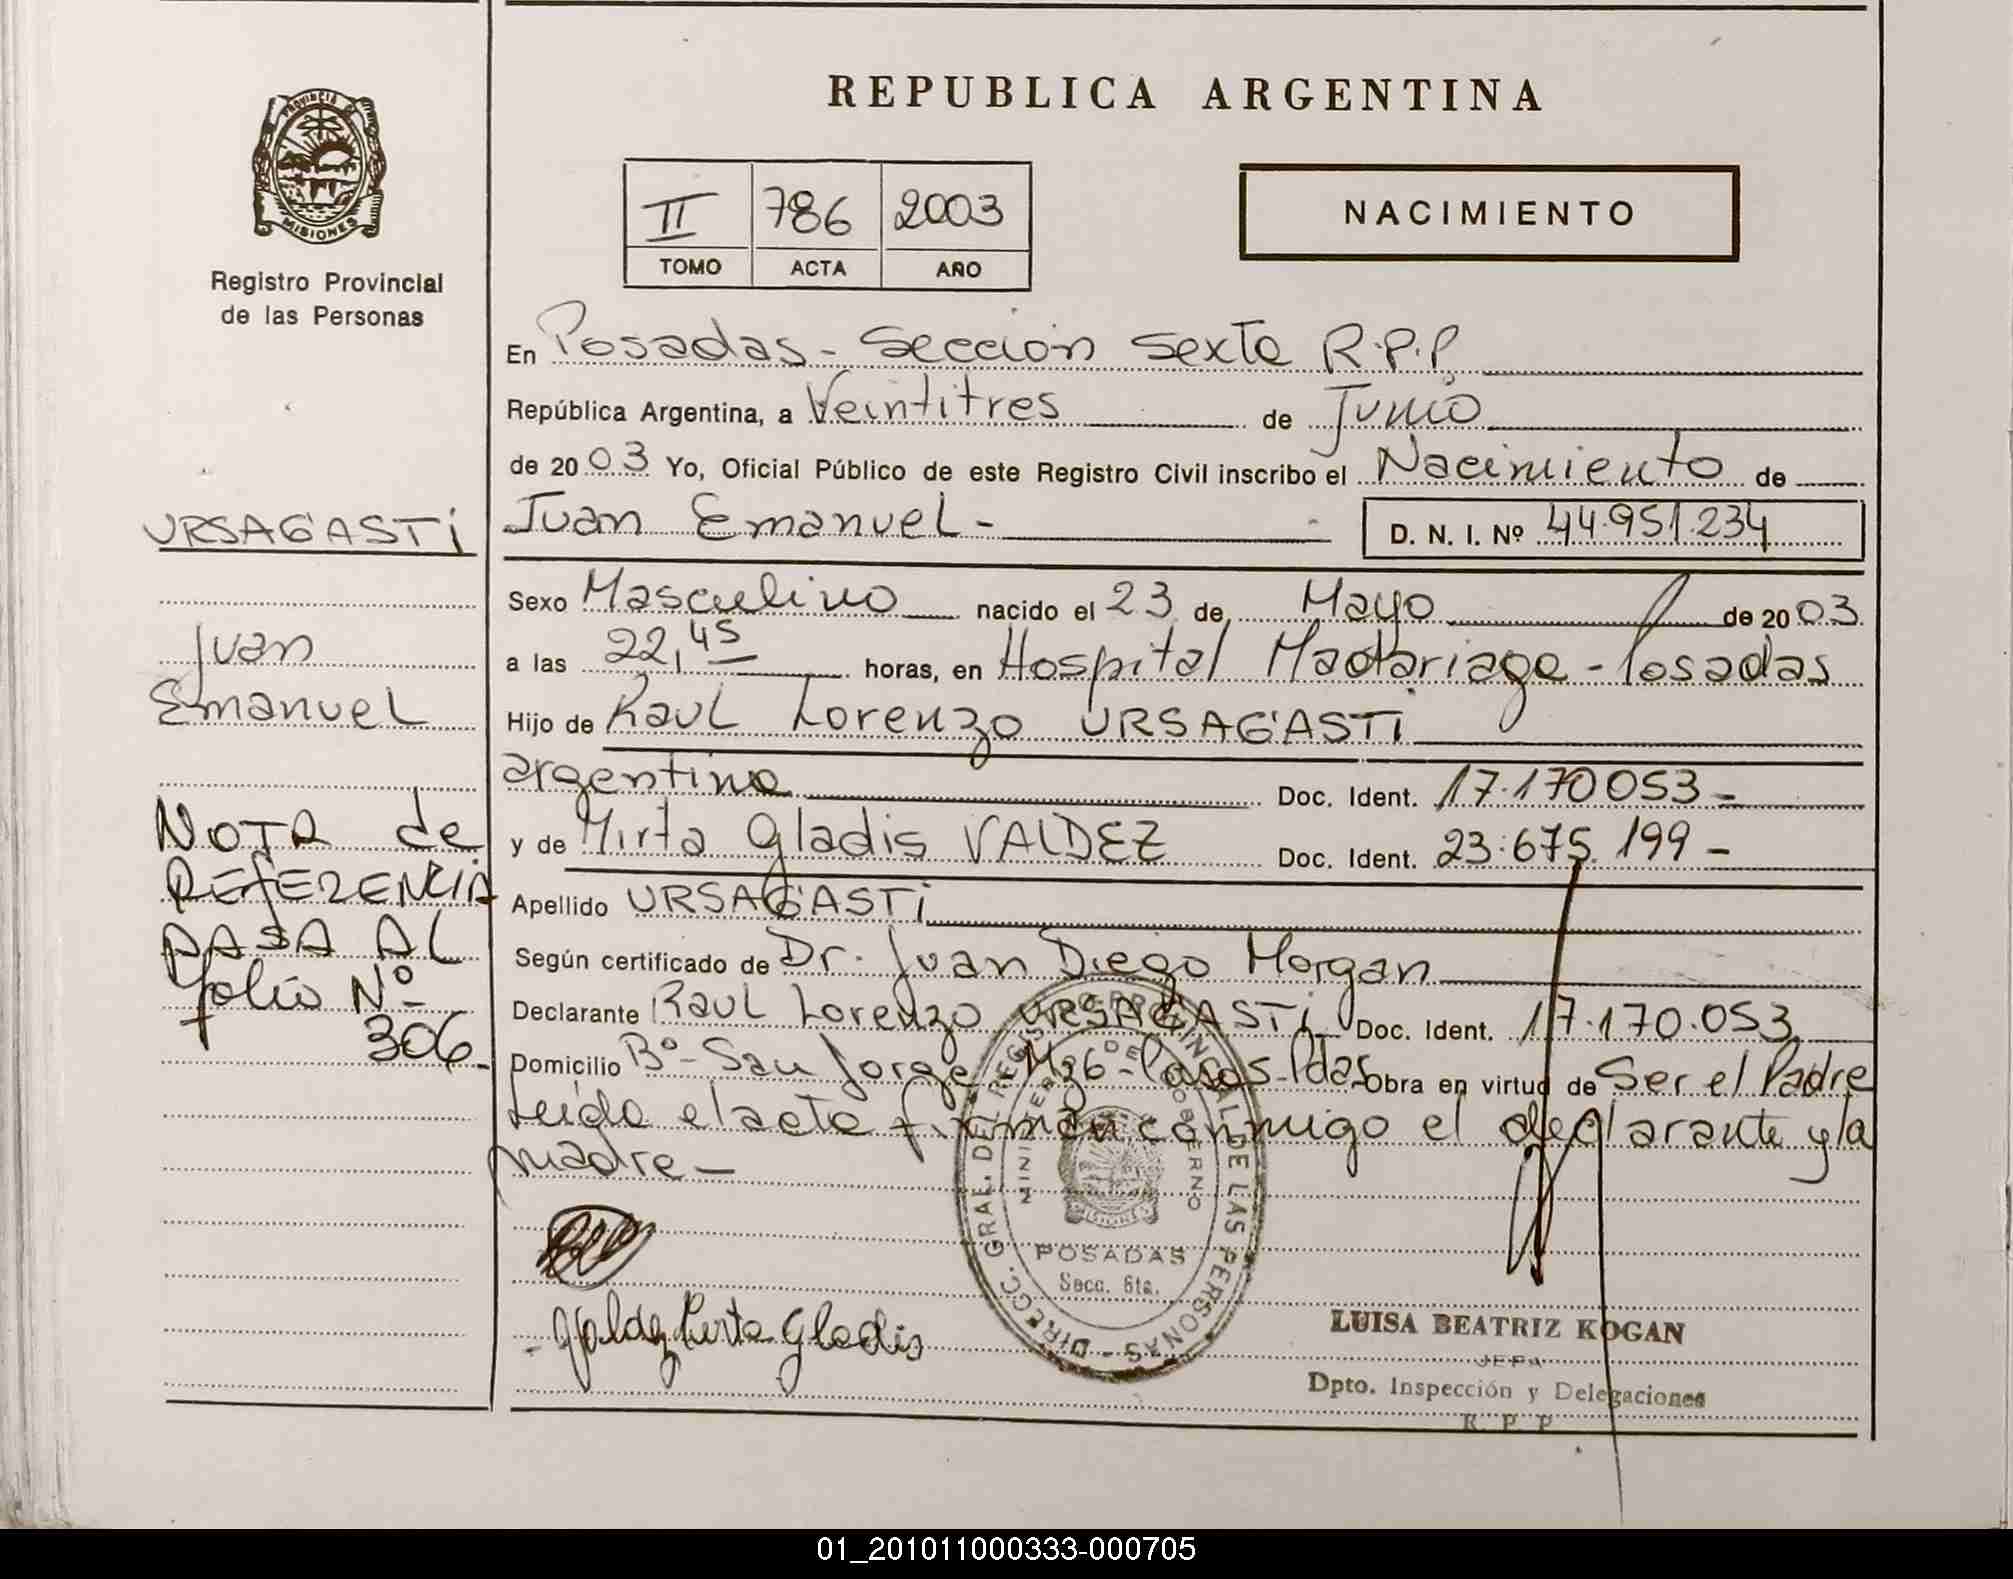 REPUBLICA ARGENTINA
PROVINCIA DE
MISIONES
Registro Provincial
de las Personas
II 786 2003
TOMO ACTA AÑO
NACIMIENTO
En Posadas - Sección Sexta R.P.P.
República Argentina, a Veintitres de Junio
de 2003 Yo, Oficial Público de este Registro Civil inscribo el Nacimiento de
Juan Emanuel -
D. N. I. Nº 44.951.234
Sexo Masculino nacido el 23 de Mayo de 2003
a las 22,45 horas, en Hospital Madariaga - Posadas
Hijo de Raul Lorenzo URSAGASTI
argentino Doc. Ident. 17.170053 -
y de Mirta Gladis VALDEZ Doc. Ident. 23.675.199 -
Apellido URSAGASTI
Según certificado de Dr. Juan Diego Morgan
Declarante Raul Lorenzo URSAGASTI Doc. Ident. 17.170.053
Domicilio Bº - San Jorge Mz6 - Casa5 - Pdas Obra en virtud de Ser el Padre
Leída el acta firman conmigo el declarante y la
madre -
Valdez Mirta Gladis
URSAGASTI
Juan
Emanuel
NOTA de
REFERENCIA
PASA AL
folio Nº
306
DIRECC. GRAL. DEL REGISTRO PROVINCIAL DE LAS PERSONAS -
MINISTERIO DE GOBIERNO
MISIONES
POSADAS
Secc. 6ta.
LUISA BEATRIZ KOGAN
JEFA
Dpto. Inspección y Delegaciones
R. P. P
01_201011000333-000705